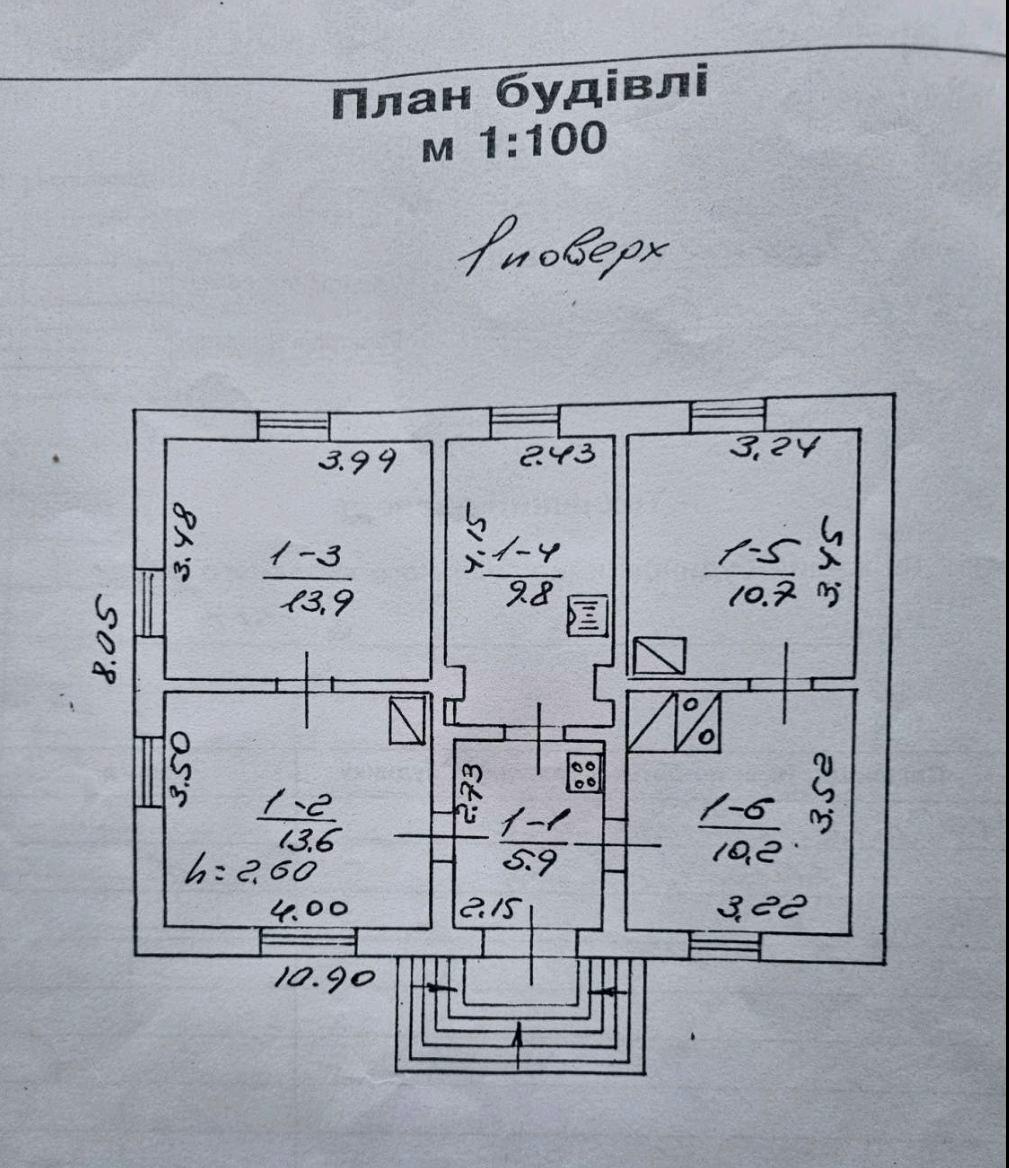 План будівлі
м 1:100
1 поверх
3.99
2.43
3,24
3.48
4.15
3.45
1-3
13,9
1-4
9.8
1-5
10.7
8.05
3.50
2.73
3.52
1-2
13.6
1-1
5.9
1-6
10,2
h=2,60
4.00
2.15
3,22
10.90